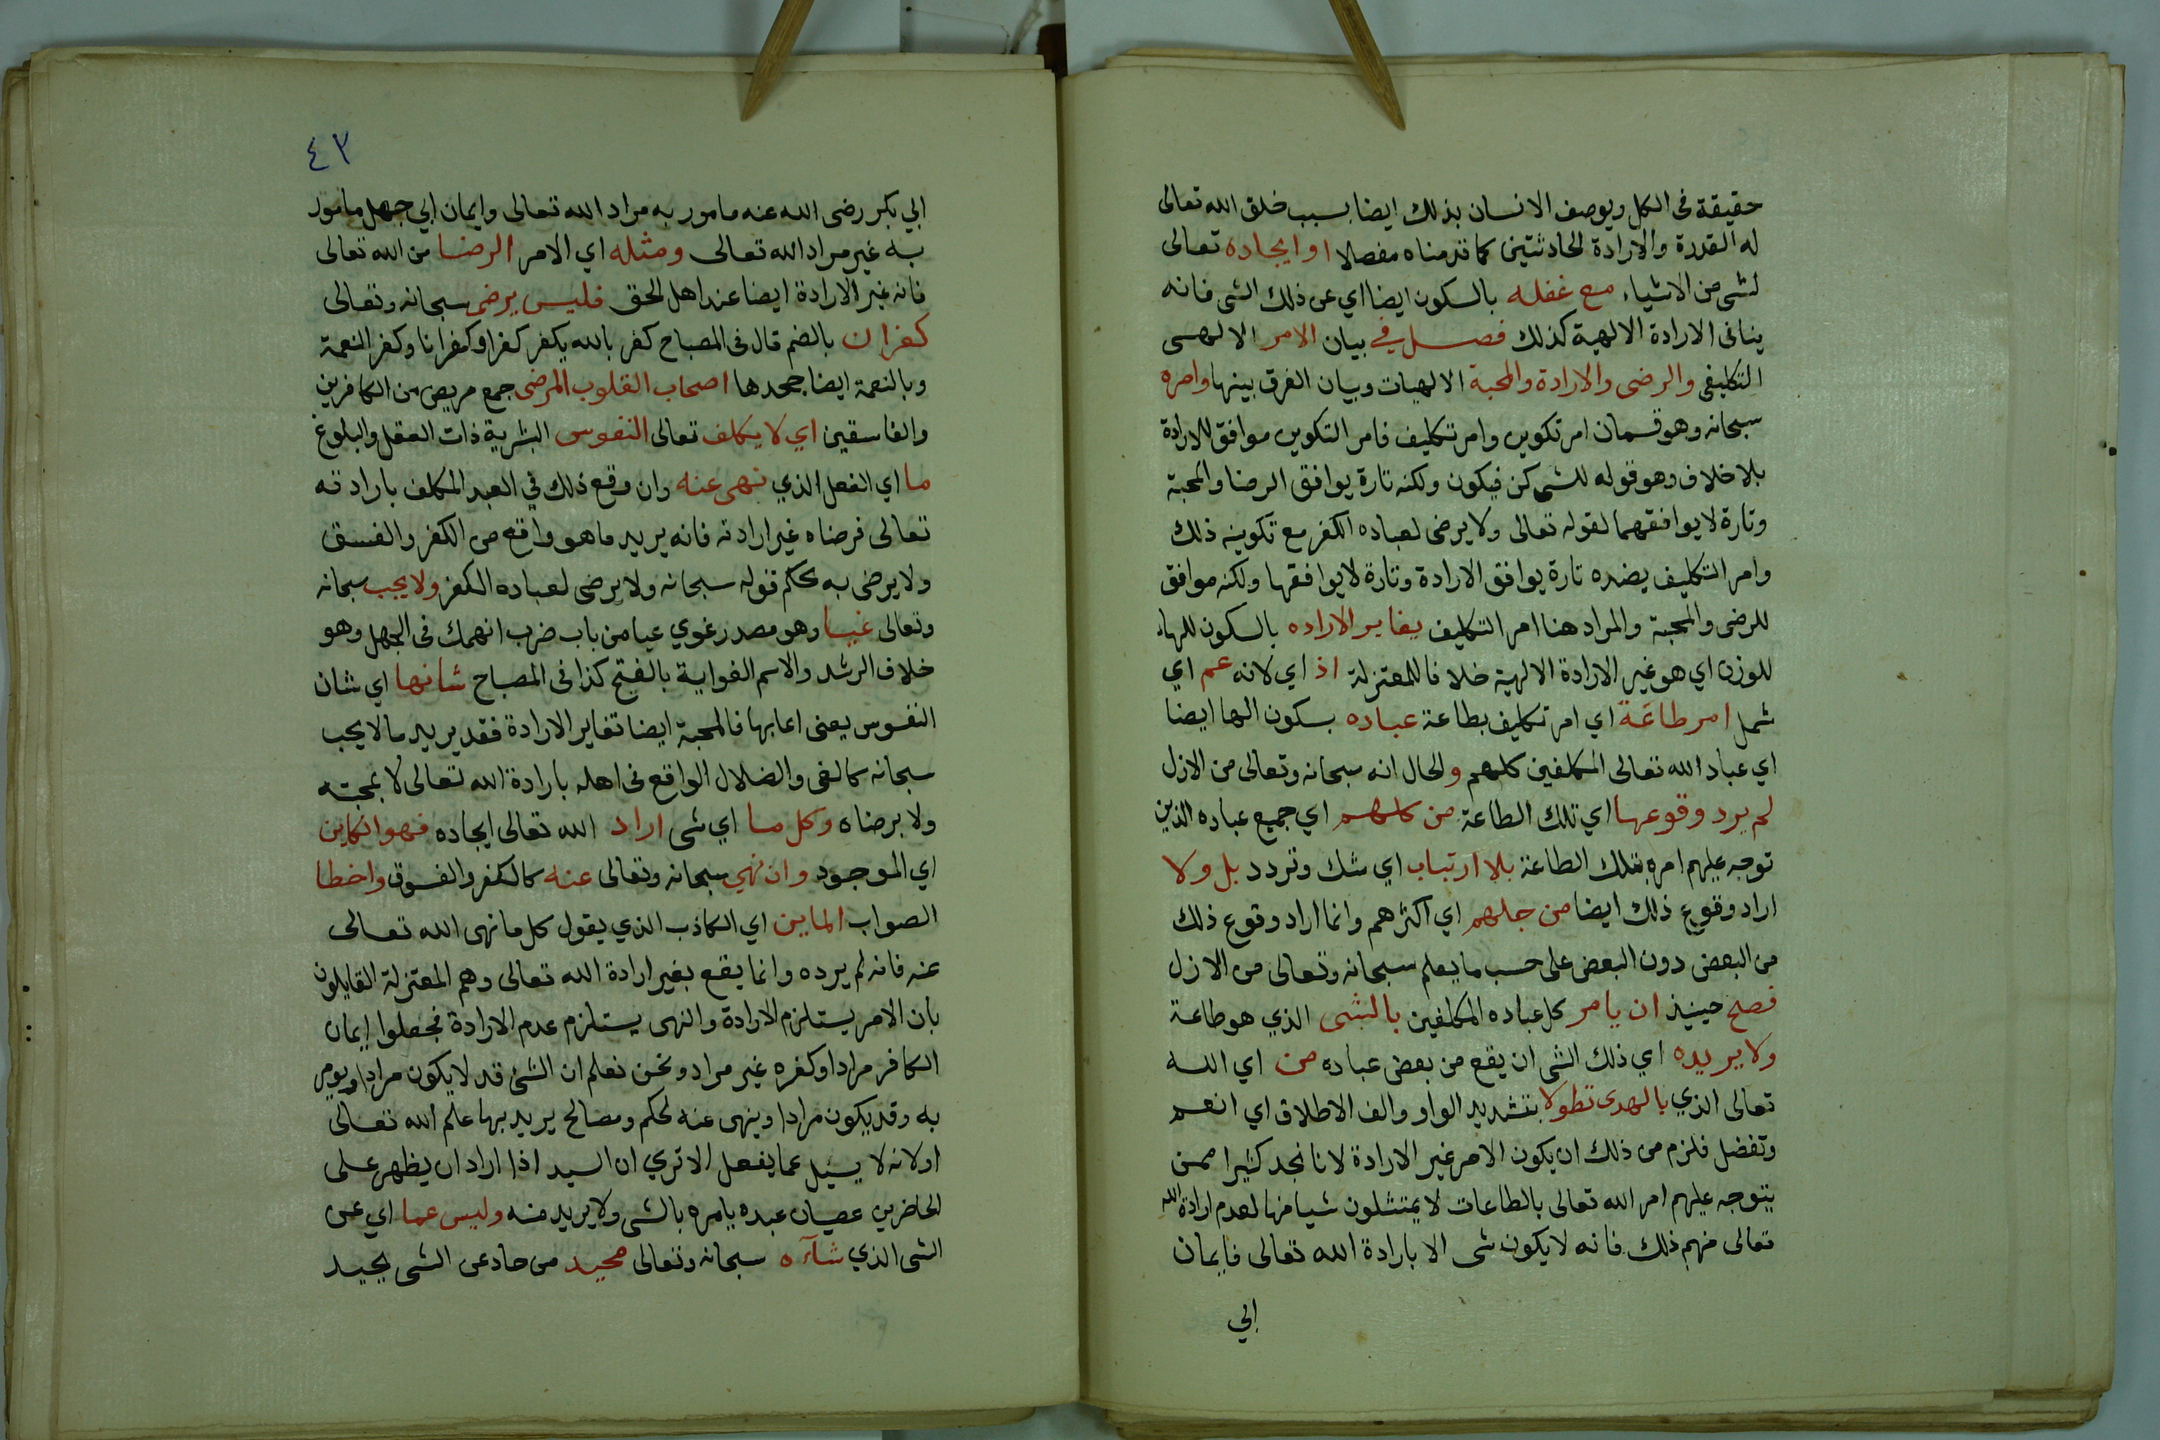 حقيقة في الكل ويوصف الانسان بذلك ايضا بسبب خلق الله تعالى
له القدرة والارادة الحادثتين كما قدمناه مفصلا او ايجاده تعالى
لشي من الاشياء مع غفله بالسكون ايضا اي عن ذلك الشي فانه
ينافي الارادة الالهية كذلك فصل في بيان الامر الالهي
التكليفي والرضى والارادة والمحبة الالهيات وبيان الفرق بينها وامره
سبحانه وهو قسمان امر تكوين وامر تكليف فامر التكوين موافق للارادة
بلا خلاف وهو قوله للشي كن فيكون ولكنه تارة يوافق الرضا والمحبة
وتارة لا يوافقهما لقوله تعالى ولا يرضى لعباده الكفر مع تكوينه ذلك
وامر التكليف بضده تارة يوافق الارادة وتارة لا يوافقها ولكنه موافق
للرضى والمحبة والمراد هنا امر التكليف يغاير الاراده بالسكون للهاء
للوزن اي هو غير الارادة الالهية خلافا للمعتزلة اذ اي لانه عم اي
شمل امر طاعة اي امر تكليف بطاعة عباده بسكون الها ايضا
اي عباد الله تعالى المكلفين كلهم والحال انه سبحانه وتعالى من الازل
لم يرد وقوعها اي تلك الطاعة من كلهم اي جميع عباده الذين
توجه عليهم امره بتلك الطاعة بلا ارتياب اي شك وتردد بل ولا
اراد وقوع ذلك ايضا من جلهم اي اكثرهم وانما اراد وقوع ذلك
من البعض دون البعض على حسب ما يعلم سبحانه وتعالى من الازل
فصح حينيذ ان يامر كل عباده المكلفين بالشي الذي هو طاعة
ولا يريده اي ذلك الشي ان يقع من بعض عباده من اي الله
تعالى الذي بالهدى تطولا بتشديد الواو والف الاطلاق اي انعم
وتفضل فلزم من ذلك ان يكون الامر غير الارادة لانا نجد كثيرا ممن
يتوجه عليهم امر الله تعالى بالطاعات لا يمتثلون شيا منها لعدم ارادة الله
تعالى منهم ذلك فانه لا يكون شي الا بارادة الله تعالى فايمان
ابي
٤٣
ابي بكر رضى الله عنه مامور به مراد الله تعالى وايمان ابي جهل مامور
به غير مراد الله تعالى ومثله اي الامر الرضا من الله تعالى
فانه غير الارادة ايضا عند اهل الحق فليس يرضى سبحانه وتعالى
كفران بالضم قال في المصباح كفر بالله يكفر كفرا وكفرانا وكفر النعمة
وبالنعمة ايضا جحدها اصحاب القلوب المرضى جمع مريض من الكافرين
والفاسقين اي لا يكلف تعالى النفوس البشرية ذات العقل والبلوغ
ما اي الفعل الذي نهى عنه وان وقع ذلك في العبد المكلف بارادته
تعالى فرضاه غير ارادته فانه يريد ما هو واقع من الكفر والفسق
ولا يرضى به بحكم قوله سبحانه ولا يرضى لعباده الكفر ولا يحب سبحانه
وتعالى غيا وهو مصدر غوي غيا من باب ضرب انهمك في الجهل وهو
خلاف الرشد والاسم الغواية بالفتح كذا في المصباح شانها اي شان
النفوس يعنى اعابها فالمحبة ايضا تغاير الارادة فقد يريد ما لا يحب
سبحانه كالغي والضلال الواقع في اهله بارادة الله تعالى لا بمحبته
ولا برضاه وكل ما اي شي اراد الله تعالى ايجاده فهو الكاين
اي الموجود وان نهي سبحانه وتعالى عنه كالكفر والفسوق واخطا
الصواب الماين اي الكاذب الذي يقول كل ما نهى الله تعالى
عنه فانه لم يرده وانما يقع بغير ارادة الله تعالى وهم المعتزلة القايلون
بان الامر يستلزم الارادة والنهى يستلزم عدم الارادة فجعلوا ايمان
الكافر مرادا وكفره غير مراد ونحن نعلم ان الشئ قد لا يكون مرادا ويومر
به وقد يكون مرادا وينهى عنه لحكم ومصالح يريد بها علم الله تعالى
اولانه لا يسئل عما يفعل الا ترى ان السيد اذا اراد ان يظهر على
الحاضرين عصيان عبده يامره بالشي ولا يريد منه وليس عما اي عن
الشي الذي شآءه سبحانه وتعالى محيد من حاد عن الشي يحيد